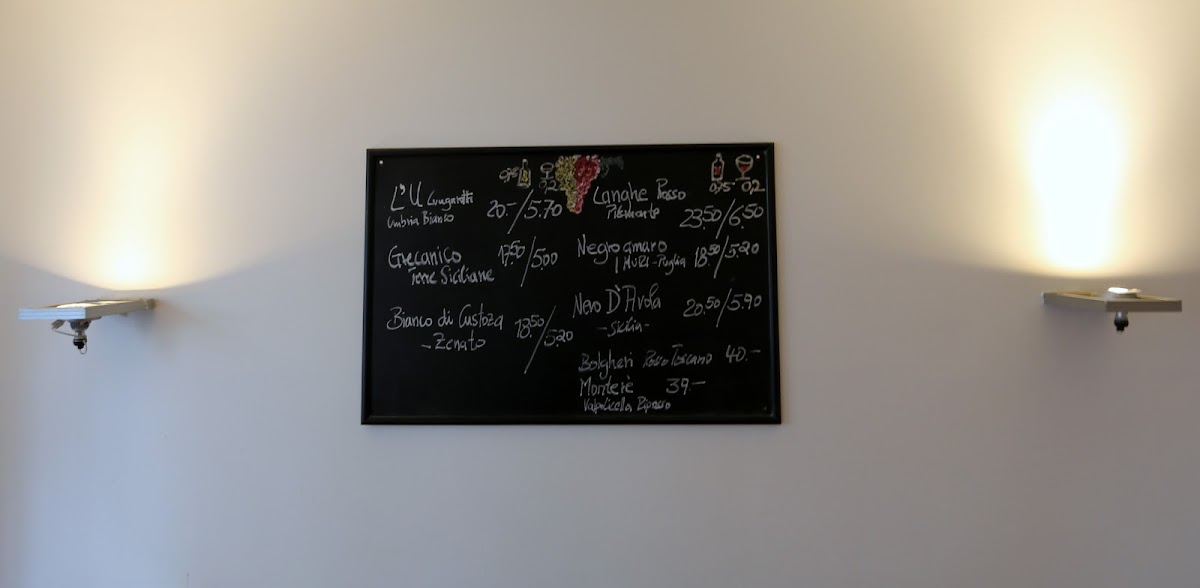 0,75 0,2
L'U Lungarotti
Umbria Bianco
20.-/5.70
Grecanico
Terre Siciliane
17.50/5.00
Bianco di Custoza
- Zenato
18.50/5.20
0,75 0,2
Langhe Rosso
Piemonte
23.50/6.50
Negroamaro
I MURI - Puglia
18.50/5.20
Nero D'Avola
- Sicilia -
20.50/5.90
Bolgheri Rosso Toscano 40.-
Monterè 39.-
Valpolicella Ripasso